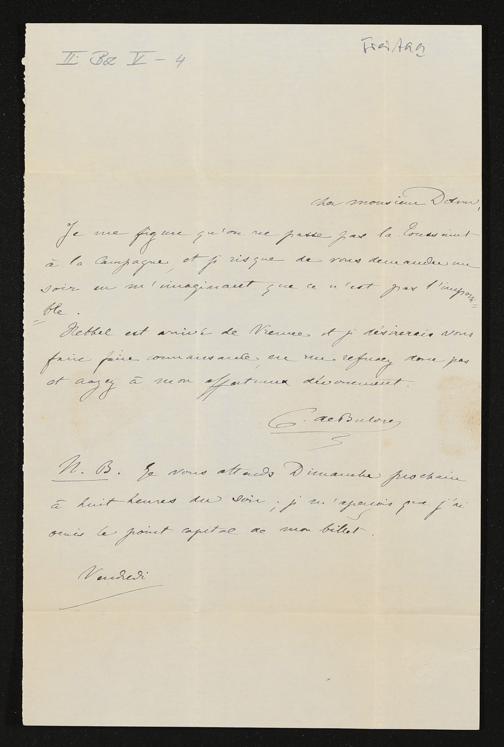 II Bé V - 4
Freitag
cher monsieur
Je me figure qu'on ne passe pas la Toussaint
à la campagne, et je risque de vous demander un
soir en m'imaginant que ce n'est pas l'impossi-
ble.
Hebbel est arrivé de Vienne et je désirerais vous
faire faire connaissance, en me refusez donc pas
et croyez à mon affectueux dévouement.
C. de Bulow
N. B. Je vous attends Dimanche prochain
à huit heures du soir; je m'aperçois que j'ai
omis le point capital de mon billet.
Vendredi